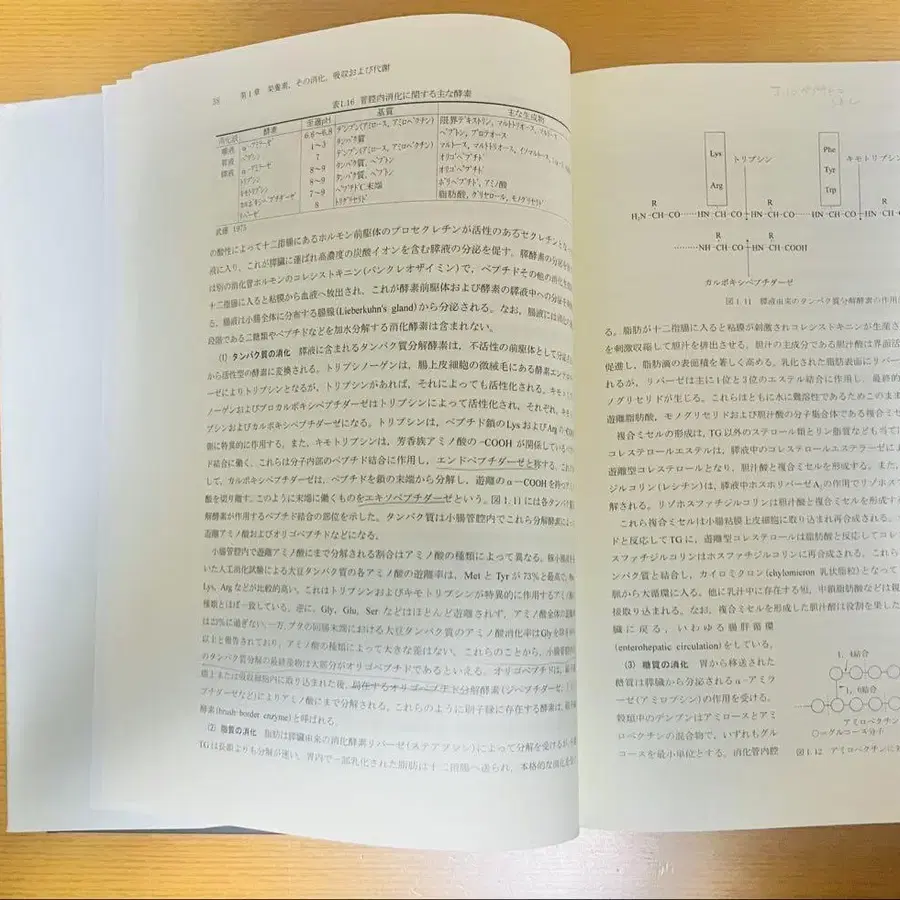 38 第1章 栄養素，その消化，吸収および代謝
表1.16 管腔内消化に関する主な酵素
消化液 酵素 至適pH 基質 主な生成物
唾液 α-アミラーゼ 6.6～6.8 デンプン(アミロース，アミロペクチン) 限界デキストリン，マルトトリオース，マルトース
胃液 ペプシン 1～3 タンパク質 ペプトン，プロテオース
膵液 α-アミラーゼ 7 デンプン(アミロース，アミロペクチン) マルトース，マルトトリオース，イソマルトース
トリプシン 8～9 タンパク質，ペプトン オリゴペプチド
キモトリプシン 8～9 タンパク質，ペプトン オリゴペプチド
カルボキシペプチダーゼ 7～9 ペプチドC末端 ポリペプチド，アミノ酸
リパーゼ 8 トリグリセリド 脂肪酸，グリセロール，モノグリセリド
武藤 1975
の酸性によって十二指腸にあるホルモン前駆体のプロセクレチンが活性のあるセクレチンとな
液に入り，これが膵臓に運ばれ高濃度の炭酸イオンを含む膵液の分泌を促す．膵酵素の分泌を
は別の消化管ホルモンのコレシストキニン(パンクレオザイミン)で，ペプチドその他の消化
十二指腸に入ると粘膜から血液へ放出され，これが酵素前駆体および酵素の膵液中への分泌を
る．腸液は小腸全体に分布する腸腺(Lieberkuhn's gland)から分泌される．なお，腸液には消化の
段階である二糖類やペプチドなどを加水分解する消化酵素は含まれない．
(1) タンパク質の消化 膵液に含まれるタンパク質分解酵素は，不活性の前駆体として分泌
から活性型の酵素に変換される．トリプシノーゲンは，腸上皮細胞の微絨毛にある酵素エンテ
ーゼによりトリプシンとなるが，トリプシンがあれば，それによっても活性化される．キモト
ノーゲンおよびプロカルボキシペプチダーゼはトリプシンによって活性化され，それぞれ，キモ
プシンおよびカルボキシペプチダーゼになる．トリプシンは，ペプチド鎖のLysおよびArgの
側に特異的に作用する．また，キモトリプシンは，芳香族アミノ酸の－COOHが関係している
ド結合に働く，これらは分子内部のペプチド結合に作用し，エンドペプチダーゼと称する．これ
して，カルボキシペプチダーゼは，ペプチドを鎖の末端から分解し，遊離のα－COOHを持つ
酸を切り離す．このように末端に働くものをエキソペプチダーゼという．図1.11には各タンパク
解酵素が作用するペプチド結合の部位を示した．タンパク質は小腸管腔内でこれら分解酵素に
遊離アミノ酸およびオリゴペプチドなどになる．
小腸管腔内で遊離アミノ酸にまで分解される割合はアミノ酸の種類によって異なる．
いた人工消化試験による大豆タンパク質の各アミノ酸の遊離率は，MetとTyrが73%と最高で
Lys，Argなどが比較的高い．これはトリプシンおよびキモトリプシンが特異的に作用するアミノ
種類とほぼ一致している．逆に，Gly，Glu，Serなどはほとんど遊離されず，アミノ酸全体の
は23%に過ぎない．一方，ブタの回腸末端における大豆タンパク質のアミノ酸消化率はGlyを
以上と報告されており，アミノ酸の種類によって大きな差はない．これらのことから，小腸管腔
のタンパク質分解の最終産物は大部分がオリゴペプチドであるといえる．オリゴペプチドは，
または吸収細胞内に取り込まれた後，局在するオリゴペプチド分解酵素(ジペプチダーゼ，
プチダーゼなど)によりアミノ酸にまで分解される．これらのように刷子縁に存在する酵素は，
酵素(brush-border enzyme)と呼ばれる．
(2) 脂質の消化 脂肪は膵臓由来の消化酵素リパーゼ(ステアプシン)によって分解を受けるが
TGは長鎖よりも分解が速い．胃内で一部乳化された脂肪は十二指腸へ送られ，本格的な消化
Lys Arg トリプシン
Phe Tyr Trp キモトリプシン
H₂N-CH-CO HN-CH-CO HN-CH-CO HN-CH-CO HN-
NH-CH-CO HN-CH-COOH
カルボキシペプチダーゼ
図1.11 膵液由来のタンパク質分解酵素の作用
る．脂肪が十二指腸に入ると粘膜が刺激されコレシストキニンが生産さ
を刺激収縮して胆汁を排出させる．胆汁の主成分である胆汁酸は界面活
促進し，脂肪滴の表面積を著しく高める．乳化された脂肪表面にリパー
れるが，リパーゼは主に1位と3位のエステル結合に作用し，最終的
ノグリセリドが生じる．これらはともに水に難溶性であるためこのまま
遊離脂肪酸，モノグリセリドおよび胆汁酸の分子集合体である複合ミセ
複合ミセルの形成は，TG以外のステロール類とリン脂質なども当て
コレステロールエステルは，膵液中のコレステロールエステラーゼによ
遊離型コレステロールとなり，胆汁酸と複合ミセルを形成する．また，
ジルコリン(レシチン)は，膵液中ホスホリパーゼA₂の作用でリゾホス
解される．リゾホスファチジルコリンは胆汁酸と複合ミセルを形成する
これら複合ミセルは小腸粘膜上皮細胞に取り込まれ再合成される．
ドと反応してTGに，遊離型コレステロールは脂肪酸と反応してコレ
スファチジルコリンはホスファチジルコリンに再合成される．これら
ンパク質と結合し，カイロミクロン(chylomicron 乳状脂粒)となって
脈から大循環に入る．他に乳汁中に存在する短，中鎖脂肪酸などは
接取り込まれる．なお，複合ミセルを形成した胆汁酸は役割を果した
臓に戻る，いわゆる腸肝循環
(enterohepatic circulation)をしている．
(3) 糖質の消化 胃から移送された
糖質は膵臓から分泌されるα-アミラ
ーゼ(アミロプシン)の作用を受ける．
穀類中のデンプンはアミロースとアミ
ロペクチンの混合物で，いずれもグル
コースを最小単位とする．消化管内腔
1，4結合
1，6結合
アミロペクチン
○=グルコース分子
図1.12 アミロペクチンに